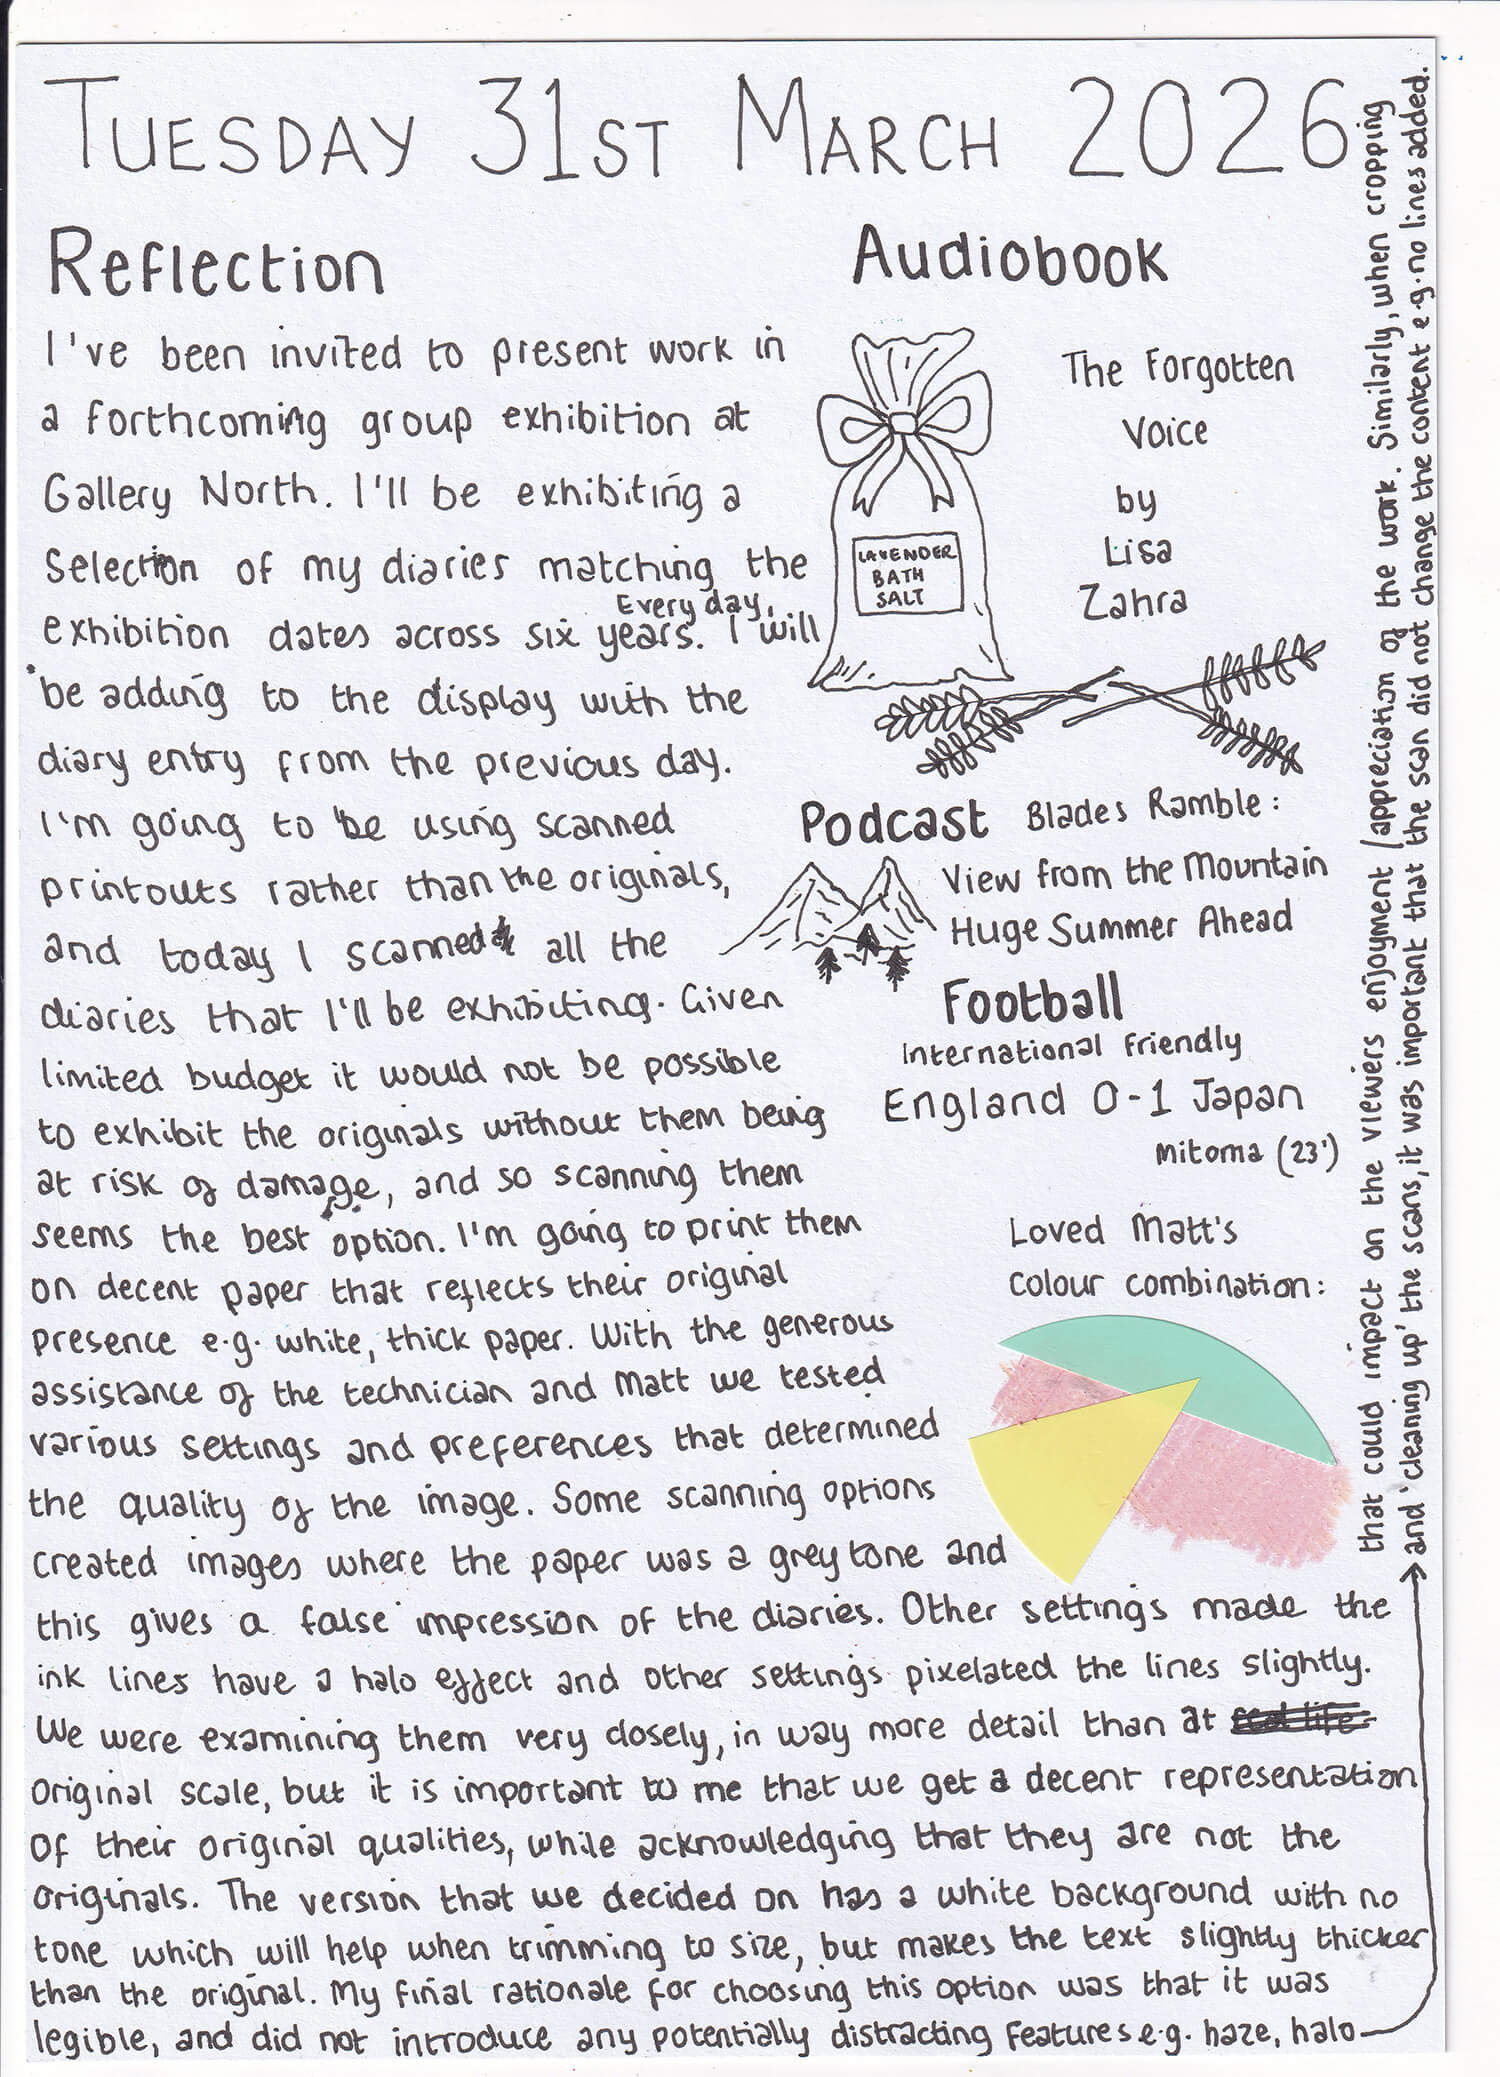 TUESDAY 31ST MARCH 2026
Reflection
I've been invited to present work in
a forthcoming group exhibition at
Gallery North. I'll be exhibiting a
selection of my diaries matching the
exhibition dates across six years. Every day, I will
be adding to the display with the
diary entry from the previous day.
I'm going to be using scanned
printouts rather than the originals,
and today I scanned all the
diaries that I'll be exhibiting. Given
limited budget it would not be possible
to exhibit the originals without them being
at risk of damage, and so scanning them
seems the best option. I'm going to print them
on decent paper that reflects their original
presence e.g. white, thick paper. With the generous
assistance of the technician and Matt we tested
various settings and preferences that determined
the quality of the image. Some scanning options
created images where the paper was a grey tone and
this gives a false impression of the diaries. Other settings made the
ink lines have a halo effect and other settings pixelated the lines slightly.
We were examining them very closely, in way more detail than at real life
original scale, but it is important to me that we get a decent representation
of their original qualities, while acknowledging that they are not the
originals. The version that we decided on has a white background with no
tone which will help when trimming to size, but makes the text slightly thicker
than the original. My final rationale for choosing this option was that it was
legible, and did not introduce any potentially distracting features e.g. haze, halo
that could impact on the viewers enjoyment/appreciation of the work. Similarly, when cropping
and 'cleaning up' the scans, it was important that the scan did not change the content e.g. no lines added.
Audiobook
LAVENDER
BATH
SALT
The Forgotten
Voice
by
Lisa
Zahra
Podcast Blades Ramble:
View from the Mountain
Huge Summer Ahead
Football
International Friendly
England 0-1 Japan
Mitoma (23')
Loved Matt's
colour combination: